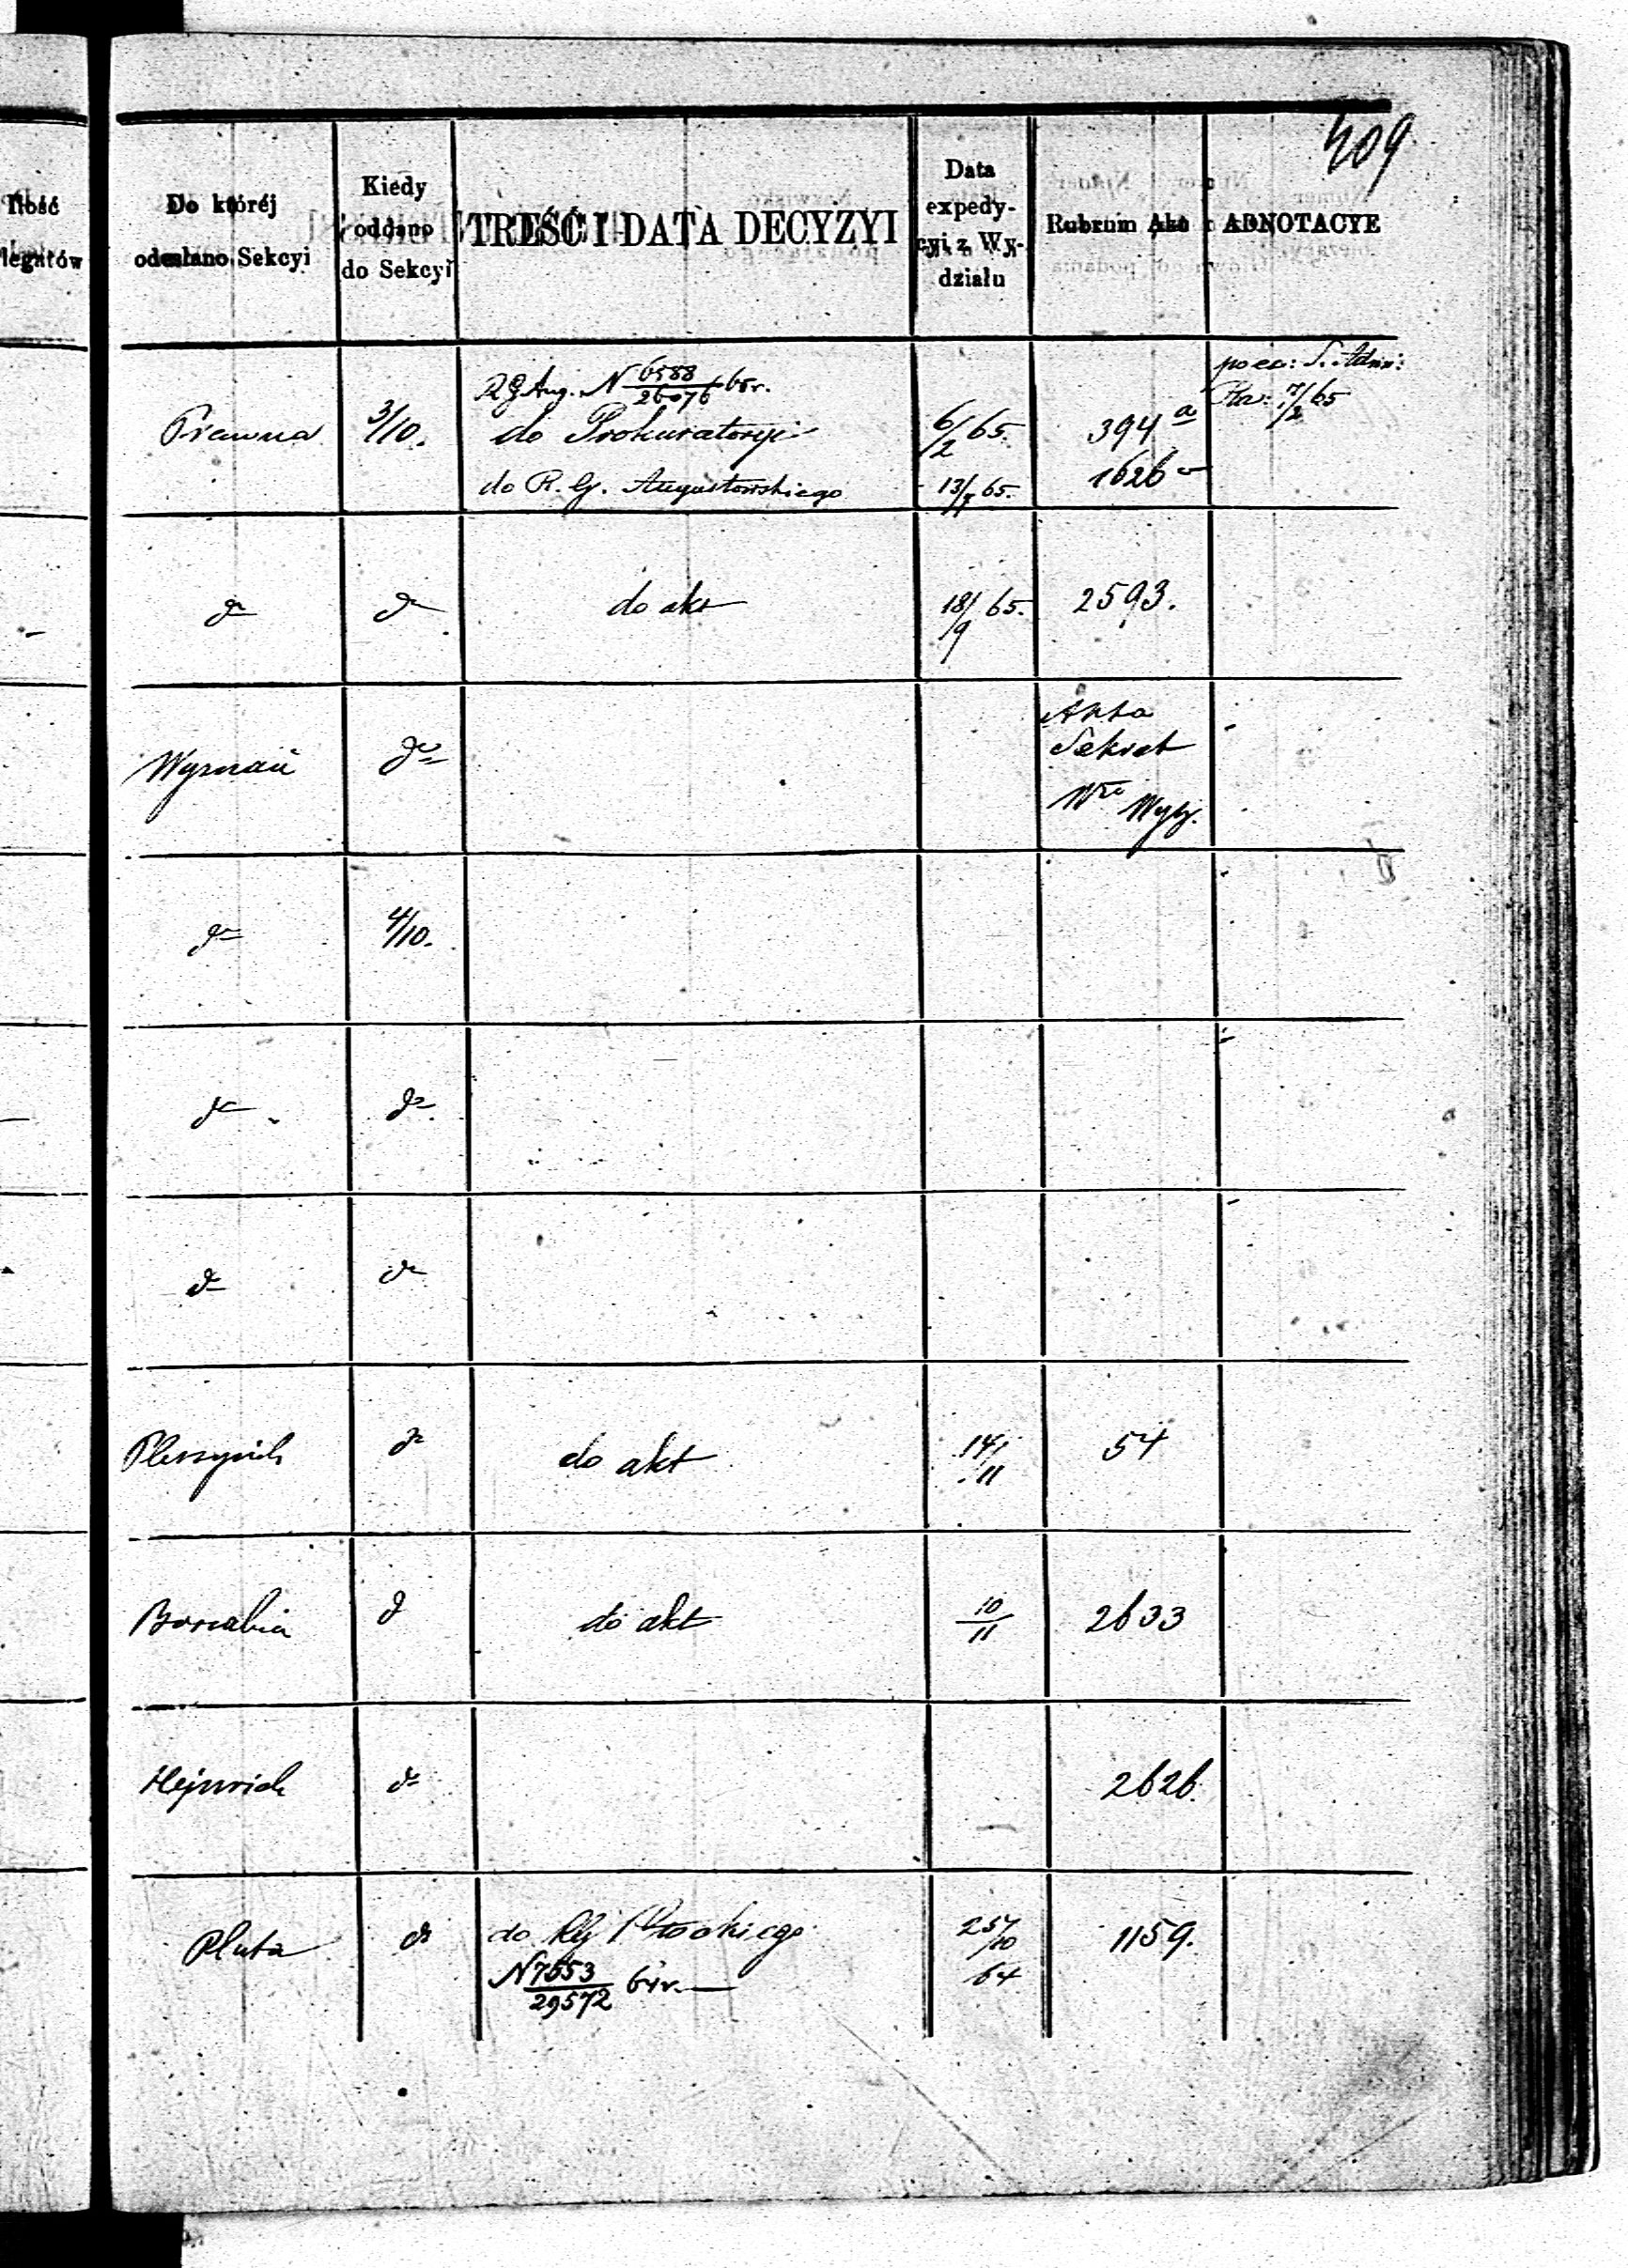 409
Ilość
legatów
Do któréj
odesłano Sekcyi
Kiedy
oddano
do Sekcyi
TREŚĆ I DATA DECYZYI
Data
expedy-
cyi z Wy-
działu
Rubrum Akt
ADNOTACYE
Prawna
3/10.
R G Aug. N 6588/26076 65 r.
do Prokuratoryi
do R. G. Augustowskiego
6/2 65.
13/X 65.
394 a
1626
7/2 65
do
do
do akt
18/9 65.
2593.
do
Akta
Sekret
do
4/10.
do
do
do
do
do
do akt
14/11
54
do
do akt
10/11
2633
Hejnrich
do
2626.
Pluta
do
do RG Płockiego
N 7653/29572 64 r.
25/10
64
1159.